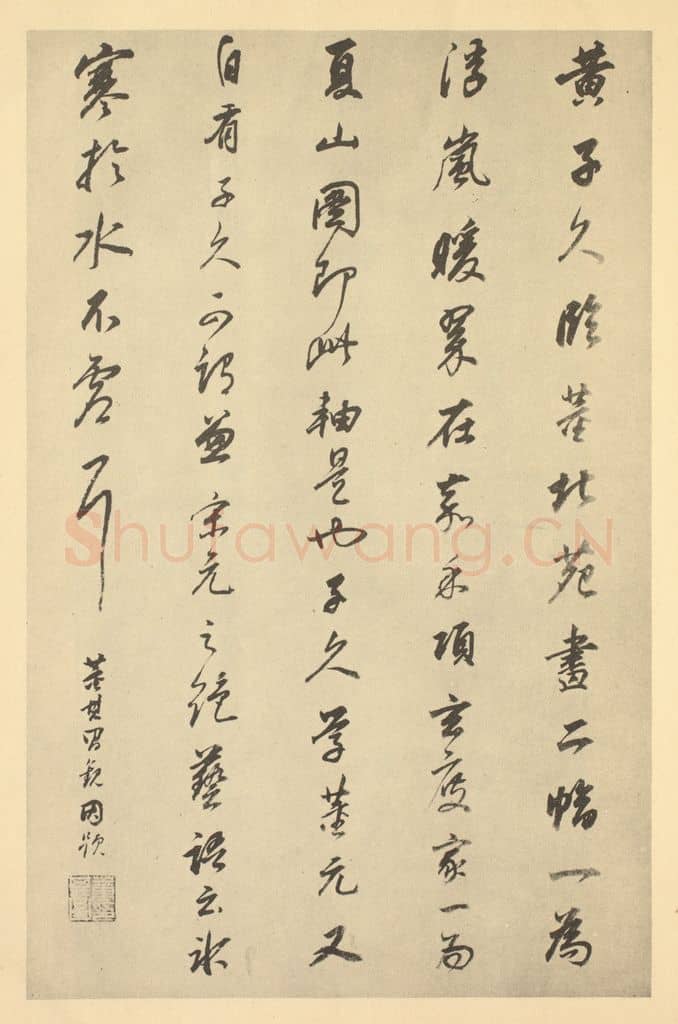 黃子久臨董北苑畫二幅一為
浮嵐暖翠在嘉禾項玄度家一為
夏山圖即此軸是也子久學董元又
自有子久可謂兼宋元之絕藝語云冰
寒於水不虛耳
董其昌觀因題
Shufawang.CN